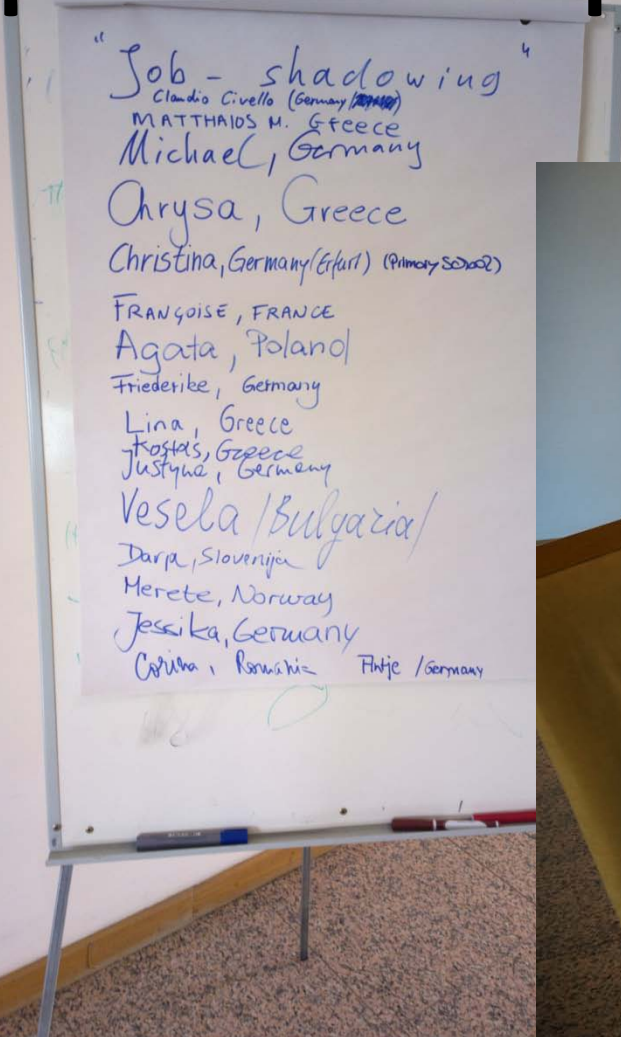 "Job - shadowing"
Claudio Civello (Germany/)
MATTHAIOS M. Greece
Michael, Germany
Chrysa, Greece
Christina, Germany (Erfurt) (Primary School)
FRANÇOISE, FRANCE
Agata, Poland
Friederike, Germany
Lina, Greece
Kostas, Greece
Justyna, Germany
Vesela /Bulgaria/
Darja, Slovenija
Merete, Norway
Jessika, Germany
Corina, Romania Antje /Germany